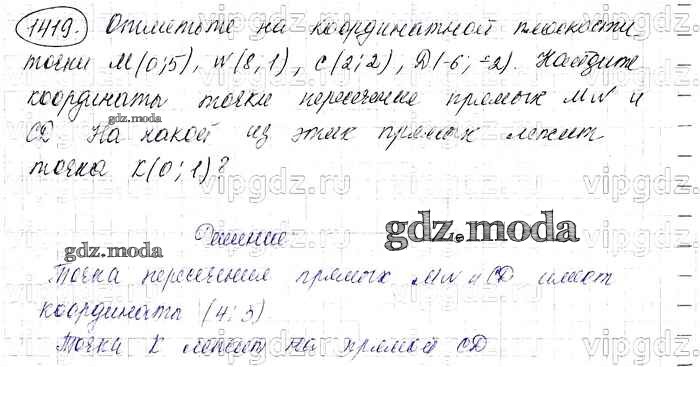 1419. Отметьте на координатной плоскости
точки M(0;5), N(8;1), C(2;2), D(-6;-2). Найдите
координаты точки пересечение прямых MN и
CD На какой из этих прямых лежит
gdz.moda
точка K(0;1)?
vipgdz.ru
Решение
gdz.moda
gdz.moda
Точка пересечение прямых MN и CD имеют
координаты (4;3)
Точка K лежит на прямой CD